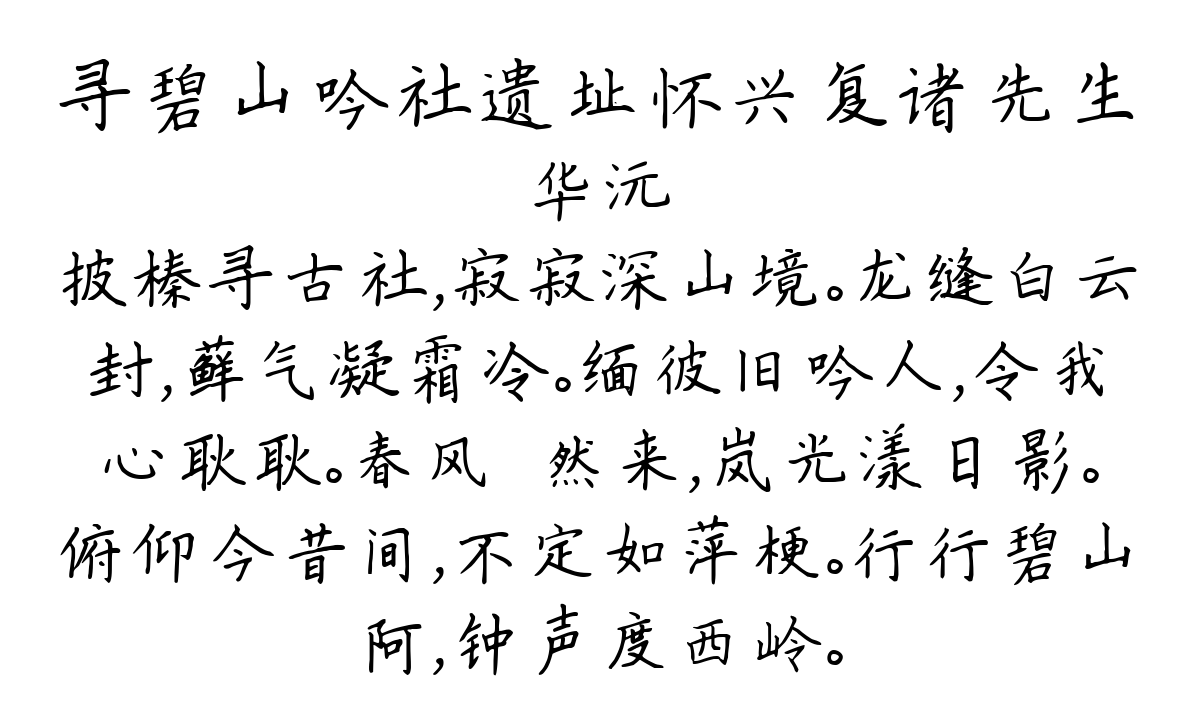 寻碧山吟社遗址怀兴复诸先生
华沅
披榛寻古社,寂寂深山境。龙缝白云
封,藓气凝霜冷。缅彼旧吟人,令我
心耿耿。春风 然来,岚光漾日影。
俯仰今昔间,不定如萍梗。行行碧山
阿,钟声度西岭。